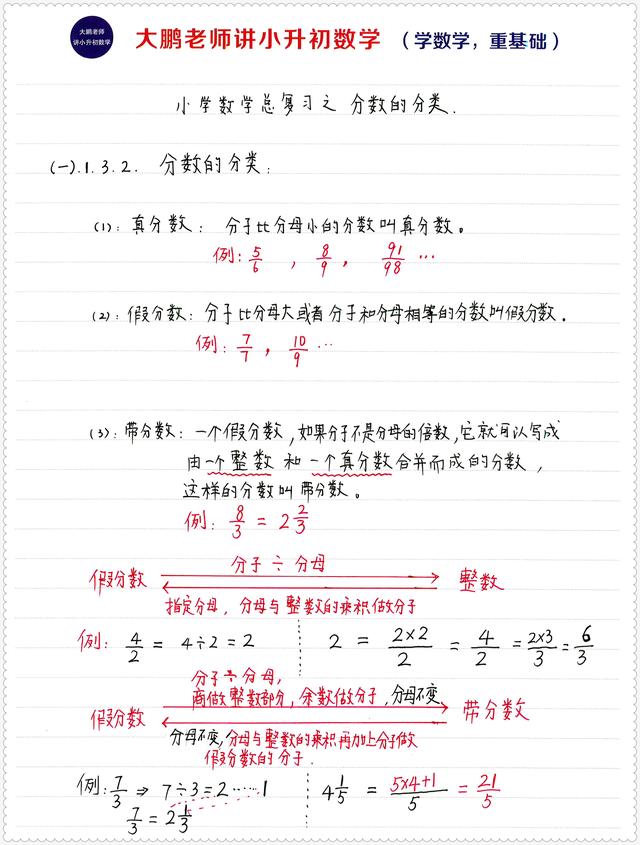 大鹏老师
讲小升初数学
大鹏老师讲小升初数学 （学数学，重基础）
小学数学总复习之 分数的分类.
(一).1.3.2. 分数的分类:
(1): 真分数: 分子比分母小的分数叫真分数。
例: 5/6 , 8/9 , 91/98 …
(2): 假分数: 分子比分母大或者分子和分母相等的分数叫假分数.
例: 7/7 , 10/9 …
(3): 带分数: 一个假分数,如果分子不是分母的倍数,它就可以写成
由一个整数 和 一个真分数合并而成的分数,
这样的分数叫带分数。
例: 8/3 = 2 2/3
分子 ÷ 分母
假分数 整数
指定分母, 分母与整数的乘积做分子
例: 4/2 = 4÷2=2 2 = 2×2/2 = 4/2 = 2×3/3 = 6/3
分子÷分母,
商做整数部分, 余数做分子, 分母不变
假分数 带分数
分母不变,分母与整数的乘积再加上分子做
假分数的分子.
例: 7/3 ⇒ 7÷3=2……1 4 1/5 = 5×4+1/5 = 21/5
7/3 = 2 1/3